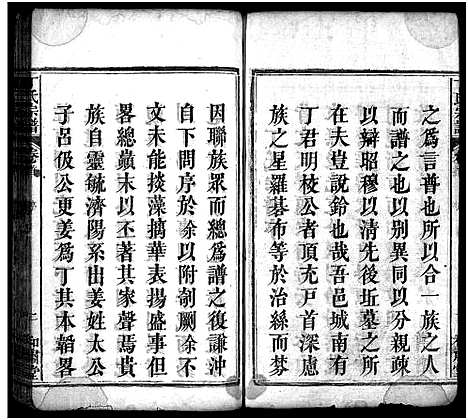 之爲言普也所以合一族之人
而譜之也以別異同以分親疎
以辯昭穆以清先後坵墓之所
在夫豈說鈴也哉吾邑城南有
丁君明校公者頂充戸首深慮
族之星羅棊布等於治絲而棼
因聯族眾而總爲譜之復謙沖
自下問序於余以附剞劂余不
文未能掞藻摛華表揚盛事但
畧總巔末以丕著其家聲焉貴
族自靈毓濟陽系出姜姓太公
子呂伋公更姜爲丁其本韜畧
氏宗譜